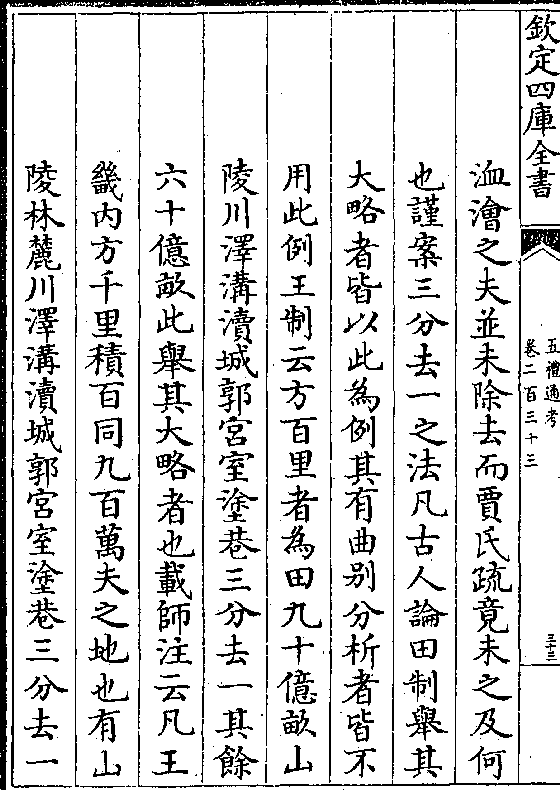 欽定四庫全書
五禮通考
卷二百三十三
三十三
洫澮之夫並未除去而賈氏疏竟未之及何
也謹案三分去一之法凡古人論田制舉其
大略者皆以此為例其有曲别分析者皆不
用此例王制云方百里者為田九十億畝山
陵川澤溝瀆城郭宮室塗巷三分去一其餘
六十億畝此舉其大略者也載師注云凡王
畿内方千里積百同九百萬夫之地也有山
陵林麓川澤溝瀆城郭宮室塗巷三分去一